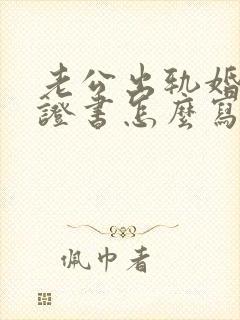 老公出軌婚
證書怎麼寫
佩巾者